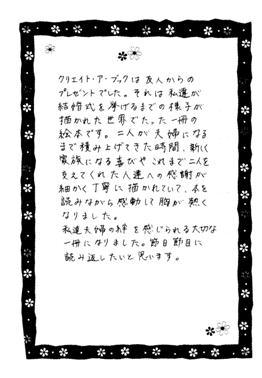 クリエイト・ア・ブックは友人からの
プレゼントでした。それは私達が
結婚式を挙げるまでの様子が
描かれた世界でたった一冊の
絵本です。二人が夫婦になる
まで積み上げてきた時間、新しく
家族になる喜びやこれまで二人を
支えてくれた人達への感謝が
細かく丁寧に描かれていて、本を
読みながら感動して胸が熱く
なりました。
私達夫婦の絆を感じられる大切な
一冊になりました。節目節目に
読み返したいと思います。